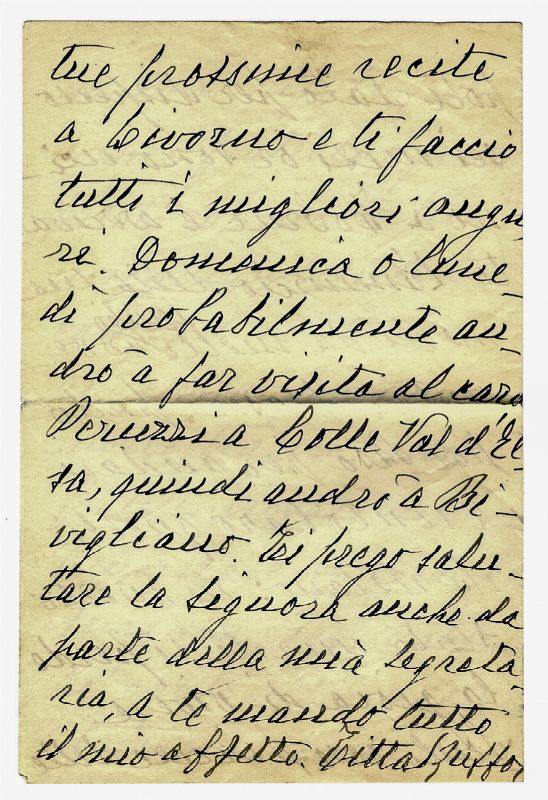 tue prossime recite
a Livorno e ti faccio
tutti i migliori augu,
ri. Domenica o lune-
dì probabilmente an-
drò a far visita al caro
Peruzzi a Colle Val d'El-
sa, quindi andrò a Bi-
vigliano. Ti prego salu-
tare la Signora anche da
parte della mia Segreta-
ria, a te mando tutto
il mio affetto. Titta Ruffo